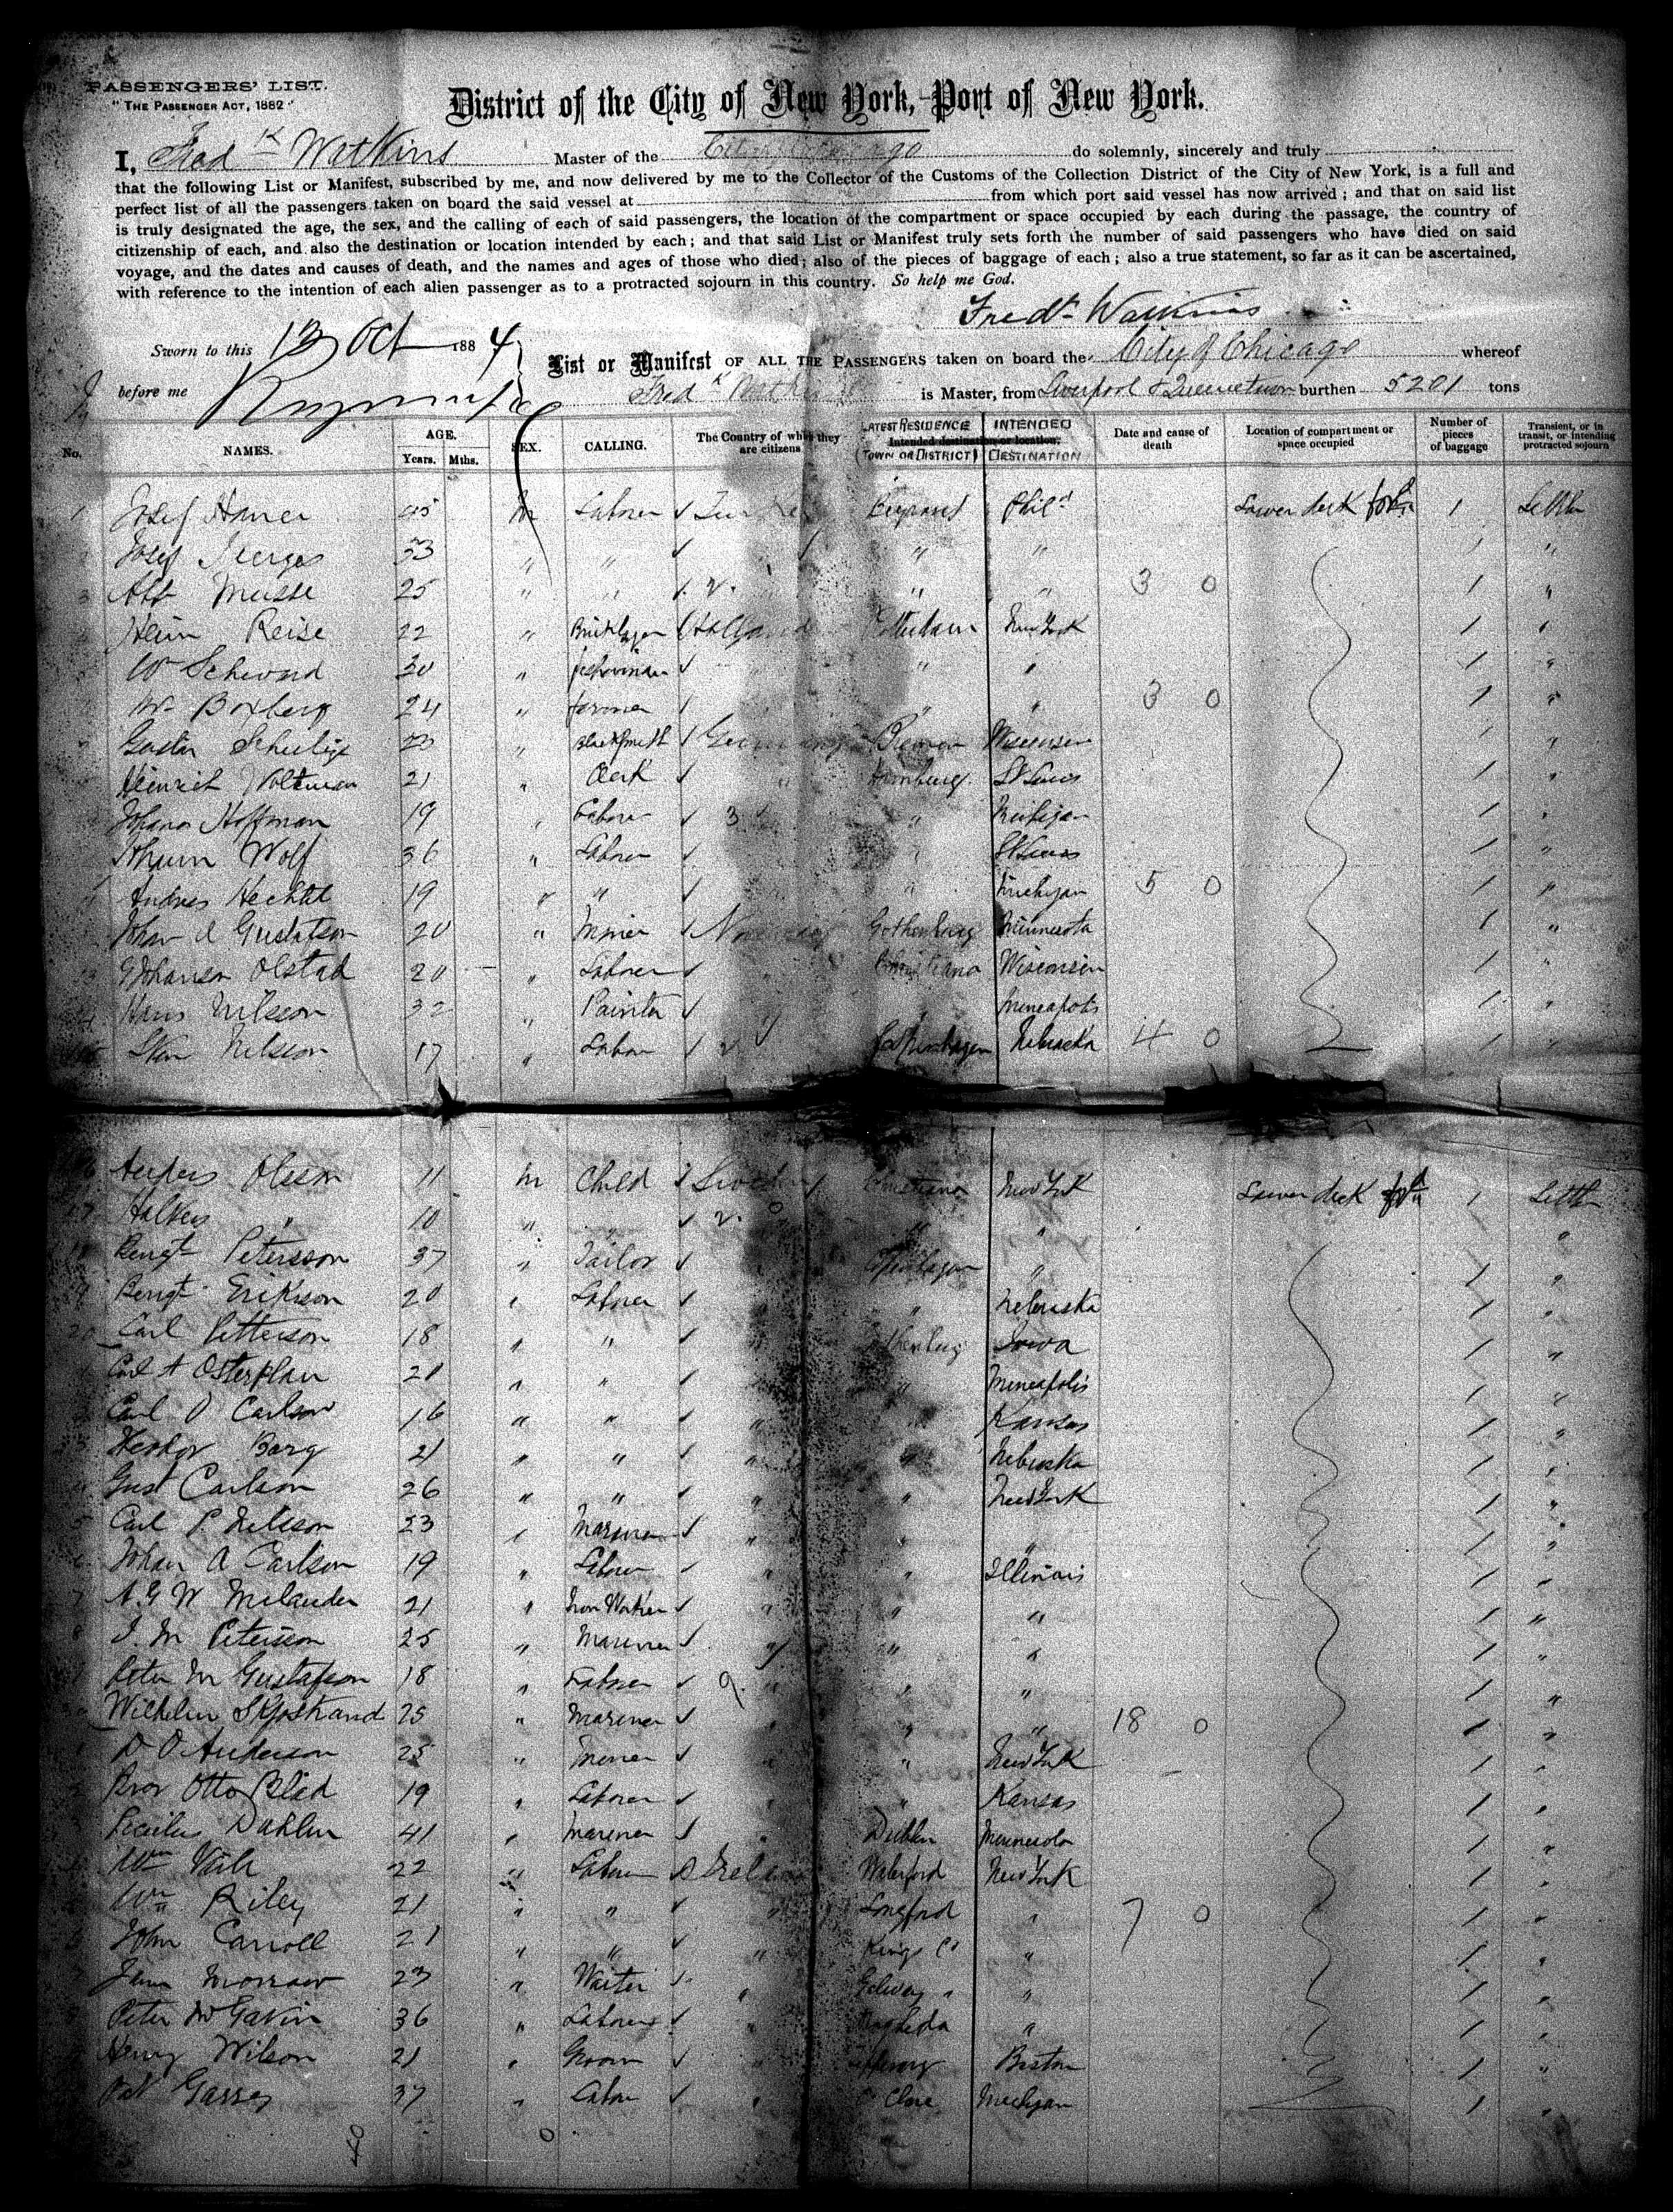 PASSENGERS' LIST.
"THE PASSENGER ACT, 1882"
District of the City of New York, Port of New York.
I, Fredk Watkins Master of the City of Chicago do solemnly, sincerely and truly
that the following List or Manifest, subscribed by me, and now delivered by me to the Collector of the Customs of the Collection District of the City of New York, is a full and
perfect list of all the passengers taken on board the said vessel at from which port said vessel has now arrived; and that on said list
is truly designated the age, the sex, and the calling of each of said passengers, the location of the compartment or space occupied by each during the passage, the country of
citizenship of each, and also the destination or location intended by each; and that said List or Manifest truly sets forth the number of said passengers who have died on said
voyage, and the dates and causes of death, and the names and ages of those who died; also of the pieces of baggage of each; also a true statement, so far as it can be ascertained,
with reference to the intention of each alien passenger as to a protracted sojourn in this country. So help me God.
Fredk Watkins
Sworn to this 13 Oct 1884
List or Manifest OF ALL THE PASSENGERS taken on board the City of Chicago whereof
before me
Fredk Watkins is Master, from Liverpool & Queenstown burthen 5201 tons
No. NAMES. AGE. Years. Mths. SEX. CALLING. The Country of which they are citizens LATEST RESIDENCE (TOWN OR DISTRICT) INTENDED DESTINATION Intended destination or location. Date and cause of death Location of compartment or space occupied Number of pieces of baggage Transient, or in transit, or intending protracted sojourn
1 Josef 45 M Labner Turkey Phild Lower deck 1
Josef 33 " " " " 1 "
3 Musse 25 " " 2. " " 3 0 1 "
Hein Reise 22 " Bricklayer Holland Rotterdam New York 1 "
Wm 30 " " " 1 "
Wm Boxberg 24 " farmer " " 3 0 1 "
Gustav 23 " Blacksmith Germany Bremen Wisconsin 1 "
Heinrich Woltman 21 " Clerk " Hamburg St Louis 1 "
Johann Hoffman 19 " Labner 3 " Michigan 1 "
Johann Wolf 36 " Labner " St Louis 1 "
Andreas Hechtel 19 " " " Michigan 5 0 1 "
Johan A Gustafson 20 " Miner Norway Gothenburg Minnesota 1 "
13 Olstad 20 " Labner Christiana Wisconsin 1 "
14 Hans Nilsson 32 " Painter Mineapolis 1 "
15 Nilsson 17 " Labner 2 Copenhagen Nebraska 4 0 1 "
16 Anders Olsson 11 M Child Sweden Christiana New York Lower deck 1
17 " 10 " " 2. " " "
18 Bengt Petersson 37 " Tailor Copenhagen " 1 "
19 Bengt Erikson 20 " Labner " " Nebraska 1 "
20 Carl Petterson 18 " " " Gothenburg Iowa 1 "
Carl A Osterplan 21 " " " Mineapolis 1 "
Carl O Carlson 16 " " " " Kansas 1 "
Berg 21 " " " " Nebraska 1 "
Gust Carlson 26 " " " " New York 1 "
5 Carl P. Nilsson 23 " Marener " " " 1 "
Johan A Carlson 19 " Labner " " Illinois 1 "
7 A.G W Melander 21 " Iron Worker " " " 1 "
8 J. M Peterson 25 " Marener " " " 1 "
Peter M Gustafson 18 " Labner 9. " " " 1 "
30 Wilhelm Skjostrand 25 " Marener " " " 18 0 1 "
D O Anderson 25 " " " New York 1 "
Bror Otto Blad 19 " Labner " " Kansas 1 "
Dahlin 41 " Marener " Dublin Minnesota 1 "
Wm 22 " Labner Ireland Waterford New York 1 "
Wm Riley 21 " " " Longford " 7 0 1 "
John Carroll 21 " " " Kings Co " 1 "
James Morrow 23 " Waiter " Galway " 1 "
Peter McGavin 36 " Labner " Drogheda " 1 "
Henry Wilson 21 " Groom " Boston 1 "
Pat 37 " Labor " Clare Mechigan 1 "
40 0